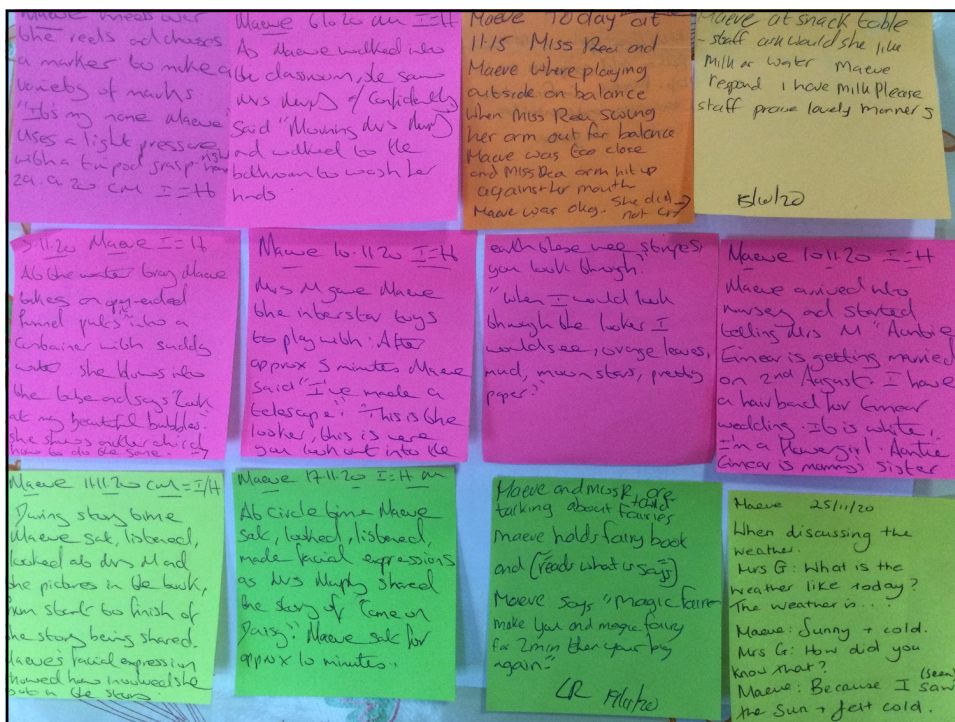 Maeve
the reels and chooses
a marker to make a
variety of marks.
"It's my name Maeve"
uses a light pressure
with a tripod grasp right hand
I=H
Maeve I=H
As Maeve walked into
the classroom, she saw
Mrs Murphy & confidently
said "Morning Mrs Murphy
and walked to the
bathroom to wash her
hands
Maeve Today at
11:15 Miss Rea and
Maeve where playing
outside on balance
when Miss Rea swong
her arm out for balance
Maeve was too close
and Miss Rea arm hit up
against her mouth
Maeve was okay. She did
not cry →
Maeve at snack table
- staff ask would she like
milk or water Maeve
respond I have milk Please
staff praise lovely manners
Maeve I=H
At the water tray Maeve
takes an open-ended
funnel puts into a
container with suddy
water she blows into
the tube and says "Look
at my beautiful bubbles".
she shows another child
how to do the same.
Maeve 10.11.20 I=H
Mrs M gave Maeve
the interstar toys
to play with. After
approx 5 minutes Maeve
said "I've made a
telescope". "This is the
looker, this is were
you look out into the
earth these wee stripes,
you look through."
"When I would look
through the looker I
would see, orange leaves,
mud, moon stars, pretty
paper."
Maeve 10.11.20 I=H
Maeve arrived into
nursery and started
telling Mrs M "Auntie
Eimear is getting married
on 2nd August. I have
a hairband for Eimear
wedding. It is white,
I'm a flowergirl. Auntie
Eimear is mammy's sister
Maeve 11.11.20 cm = I/H
During story time
Maeve sat, listened,
looked at Mrs M and
the pictures in the book,
from start to finish of
the story being shared.
Maeve's facial expression
showed how involved she
was in the story.
Maeve 17.11.20 I=H m
At circle time Maeve
sat, looked, listened,
made facial expressions
as Mrs Murphy shared
the story of "Come on
Daisy". Maeve sat for
approx 10 minutes.
Maeve and miss R are
talking about Fairies + child
maeve holds fairy book
and (reads what it says)
Maeve says "magic fairy
make you and magic fairy
for 2min then your big
again."
LR
Maeve 25/11/20
When discussing the
weather.
Mrs G: What is the
weather like today?
The weather is...
Maeve: Sunny + cold.
Mrs G: How did you
know that?
Maeve: Because I saw (seen)
the sun + felt cold.